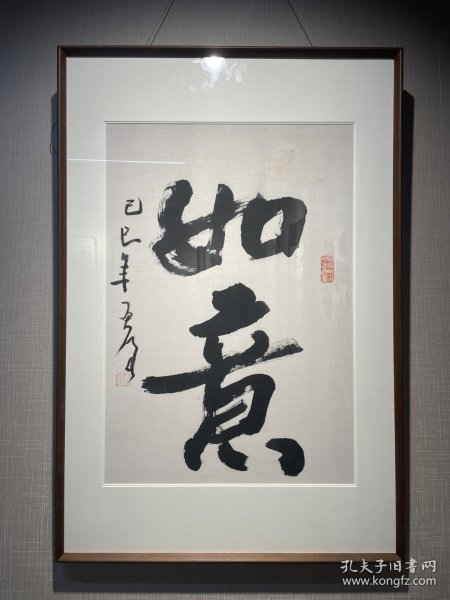 如意
己巳年
孔夫子旧书网
www.kongfz.com